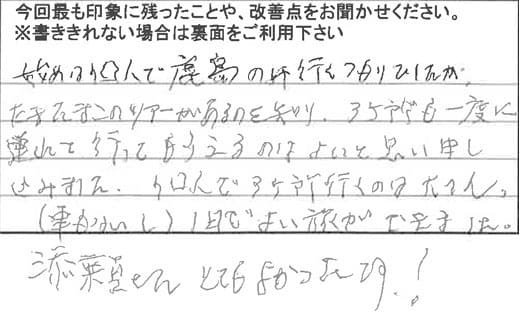 今回最も印象に残ったことや、改善点をお聞かせください。
※書ききれない場合は裏面をご利用下さい
始めは個人で鹿島のみ行くつもりでしたが
たまたまこのツアーがあるのを知り、3ケ所も一度に
連れて行ってもらえるのはよいと思い申し
込みました。個人で3ケ所行くのは大変、
(車がないし) 1日でよい旅ができました。
添乗員さん とてもよかったです。!